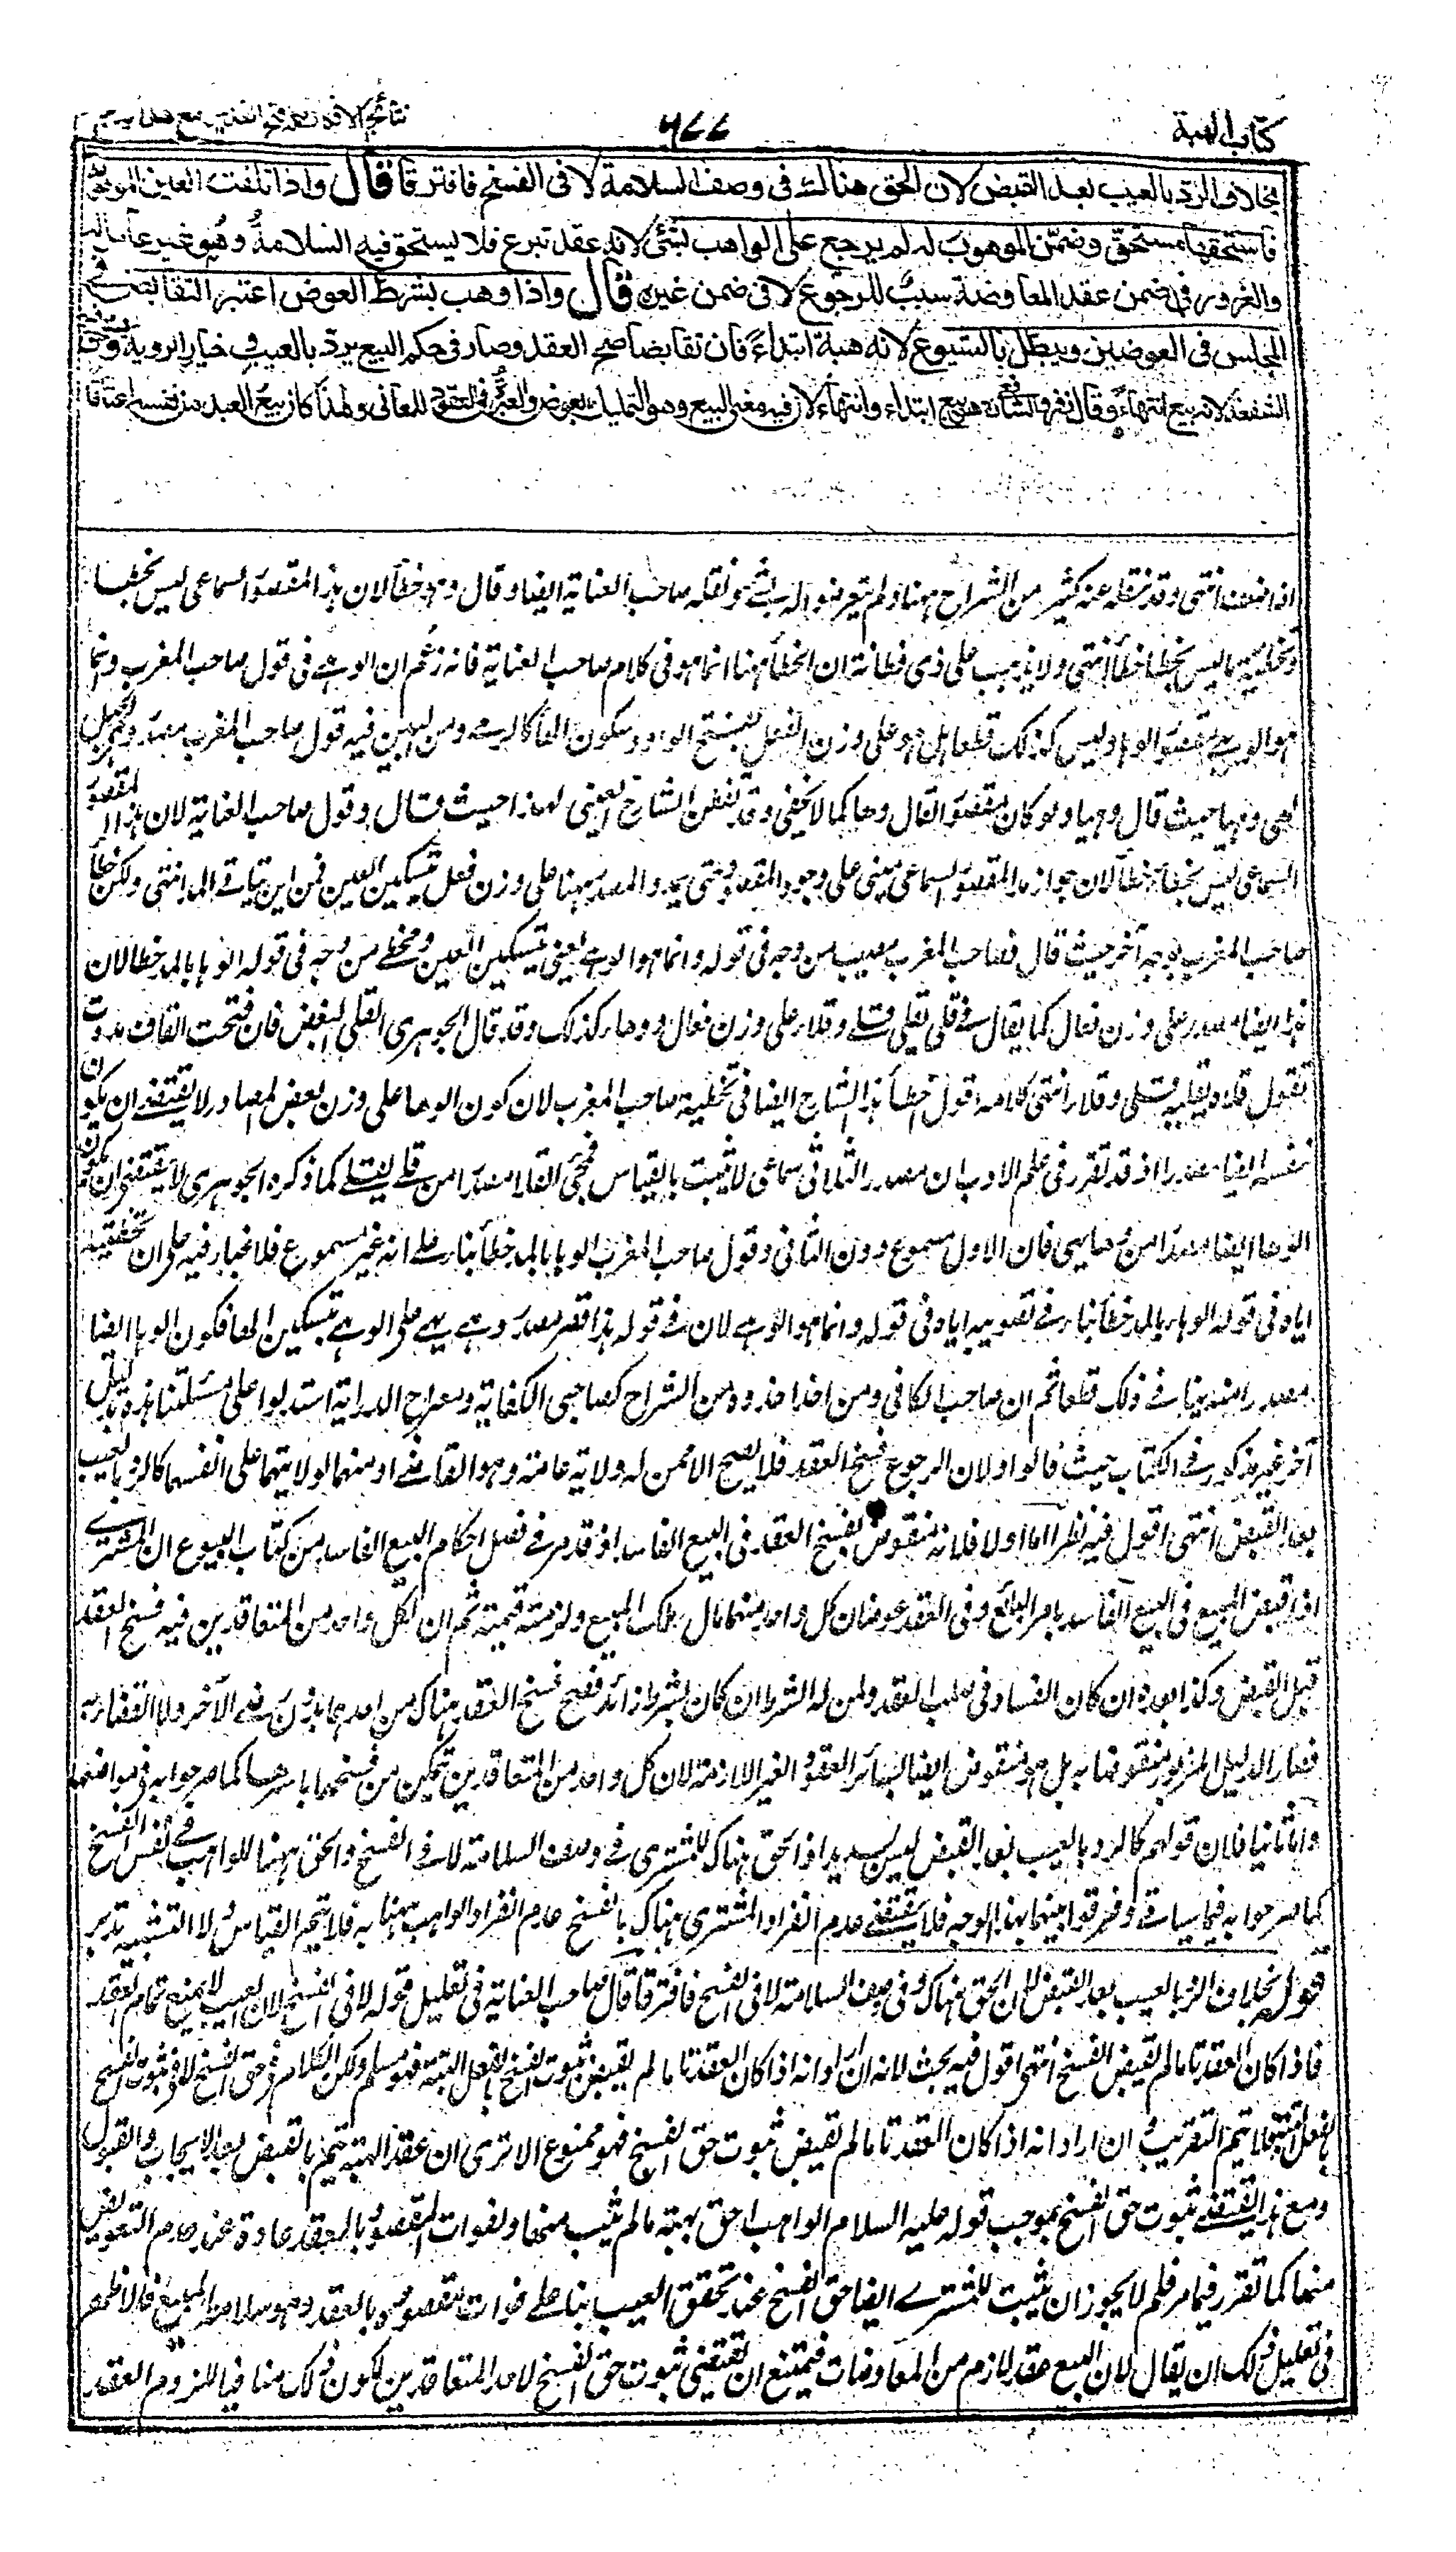 كتاب الهبة
٥٧٧
نتائج الافكار تكملة فتح القدير مع هداية
بخلاف الرد بالعيب بعد القبض لان الحق هنالك فى وصف السلامة لا فى الفسخ فافترقا قال واذا تلفت العين الموهوبة
فاستحقها مستحق وضمن الموهوب له لم يرجع على الواهب بشئ لانه عقد تبرع فلا يستحق فيه السلامة وهو غير عامل له
والغرور فى ضمن عقد المعاوضة سبب للرجوع لا فى ضمن غيره قال واذا وهب بشرط العوض اعتبر التقابض فى
المجلس فى العوضين ويبطل بالشيوع لانه هبة ابتداء فان تقابضا صح العقد وصار فى حكم البيع يرد بالعيب وخيار الروية وتستحق فيه
الشفعة لانه بيع انتهاء وقال زفر والشافعى هو بيع ابتداء وانتهاء لان فيه معنى البيع وهو التمليك بالعوض والعبرة فى العقود للمعانى ولهذا كان بيع العبد من نفسه اعتاقا
اذا ضعف انتهى وقد نقله عنه كثير من الشراح ههنا ولم يتعرضوا له بشئ ونقله صاحب العناية ايضا وقال وهو خطأ لان مد المقصور السماعى ليس بخطأ
وتخطئة ما ليس بخطأ خطأ انتهى ولا يذهب على ذى فطانة ان الخطأ ههنا انما هو فى كلام صاحب العناية فانه زعم ان الوهى فى قول صاحب المغرب وانما
هو الوهى مقصور الوهاء وليس كذلك قطعا بل هو على وزن الفعل بفتح الواو وسكون الهاء كالرمى ومن البين فيه قول صاحب المغرب مصدر وهى الحبل
يهى وهيا حيث قال وهيا ولو كان مقصورا لقال وها كما لا يخفى وقد تفطن الشارح العينى لهذا حيث قال وقول صاحب العناية لان هذا المقصور
السماعى ليس بخطأ خطأ لان جواز مد المقصور السماعى مبنى على وجود المقصور حتى يمد والمصدر ههنا على وزن فعل بتسكين العين فمن اين يتأتى المد انتهى ولكن خطأ
صاحب المغرب بوجه آخر حيث قال فصاحب المغرب مصيب من وجه فى قوله وانما هو الوهى يعنى بتسكين العين ومخطئ من وجه فى قوله الوهاء بالمد خطأ لان
هذا ايضا مصدر على وزن فعال كما يقال فى قلى يقلى قلى وقلاء على وزن فعال ووهاء كذلك وقد قال الجوهرى القلى البغض فان فتحت القاف مددت
تقول قلاه يقليه قلى وقلاء انتهى كلامه اقول خطأ هذا الشارح ايضا فى تخطئة صاحب المغرب لان كون الوهاء على وزن بعض المصادر لا يقتضى ان يكون
نفسه ايضا مصدرا اذ قد تقرر فى علم الادب ان مصدر الثلاثى سماعى لا يثبت بالقياس فمجئ القلاء مصدرا من قلى يقلى كما ذكره الجوهرى لا يقتضى ان يكون
الوهاء ايضا مصدرا من وهى يهى فان الاول مسموع دون الثانى وقول صاحب المغرب الوهاء بالمد خطأ بناء على انه غير مسموع فلا غبار فيه على ان تخطئته
اياه فى قوله الوهاء بالمد خطأ ينافى تصويبه اياه فى قوله وانما هو الوهى لان فى قوله هذا قصر مصدر وهى يهى على الوهى بتسكين الهاء فكون الوهاء ايضا
مصدرا منه ينافى ذلك قطعا ثم ان صاحب الكافى ومن اخذ حذوه من الشراح كصاحبى الكفاية ومعراج الدراية استدلوا على مسئلتنا هذه بدليل
آخر غير مذكور فى الكتاب حيث قالوا ولان الرجوع فسخ العقد فلا يصح الا ممن له ولاية عامة وهو القاضى او منهما لولايتهما على انفسهما كالرد بالعيب
بعد القبض انتهى اقول فيه نظر اما اولا فلانه منقوض بفسخ العقد فى البيع الفاسد اذ قد مر فى فصل احكام البيع الفاسد من كتاب البيوع ان المشترى
اذا قبض المبيع فى البيع الفاسد بامر البائع وفى العقد عوضان كل واحد منهما مال ملك المبيع ولزمته قيمته ثم ان لكل واحد من المتعاقدين فيه فسخ العقد
قبل القبض وكذا بعده ان كان الفساد فى صلب العقد ولمن له الشرط ان كان بشرط زائد فصح فسخ العقد هناك من احدهما بدون رضى الآخر ولا القضاء به
فصار الدليل المزبور منقوضا به بل هو منقوض ايضا بسائر العقود الغير اللازمة لان كل واحد من المتعاقدين يتمكن من فسخها باسرها كما صرحوا به فى مواضعها
واما ثانيا فلان قولهم كالرد بالعيب بعد القبض ليس بسديد اذ الحق هناك للمشترى فى وصف السلامة لا فى الفسخ والحق ههنا للواهب فى نفس الفسخ
كما صرحوا به فيما سيأتى وفرقوا بينهما بهذا الوجه فلا يقتضى عدم انفراد المشترى هناك بالفسخ عدم انفراد الواهب ههنا به فلا يتم القياس ولا التشبيه تدبر
قوله بخلاف الرد بالعيب بعد القبض لان الحق هناك فى وصف السلامة لا فى الفسخ فافترقا قال صاحب العناية فى تعليل قوله لا فى الفسخ لان العيب لا يمنع تمام العقد
فاذا كان العقد تاما لم يقتض الفسخ انتهى اقول فيه بحث لانه ان اراد انه اذا كان العقد تاما لم يقتض ثبوت الفسخ بالفعل البتة فهو مسلم ولكن الكلام فى حق الفسخ لا فى ثبوت الفسخ
بالفعل البتة فلا يتم التقريب وان اراد انه اذا كان العقد تاما لم يقتض ثبوت حق الفسخ فهو ممنوع الا ترى ان عقد الهبة يتم بالقبض بعد الايجاب والقبول
ومع هذا يقتضى ثبوت حق الفسخ بموجب قوله عليه السلام الواهب احق بهبته ما لم يثب منها ولفوات المقصود بالعقد عادة عند عدم التعويض
منها كما تقرر فيما مر فلم لا يجوز ان يثبت للمشترى ايضا حق الفسخ عند تحقق العيب بناء على فوات مقصوده بالعقد وهو سلامة المبيع فالاظهر
فى تعليل ذلك ان يقال لان البيع عقد لازم من المعاوضات فيمتنع ان يقتضى ثبوت حق الفسخ لاحد المتعاقدين لكون ذلك منافيا للزوم العقد